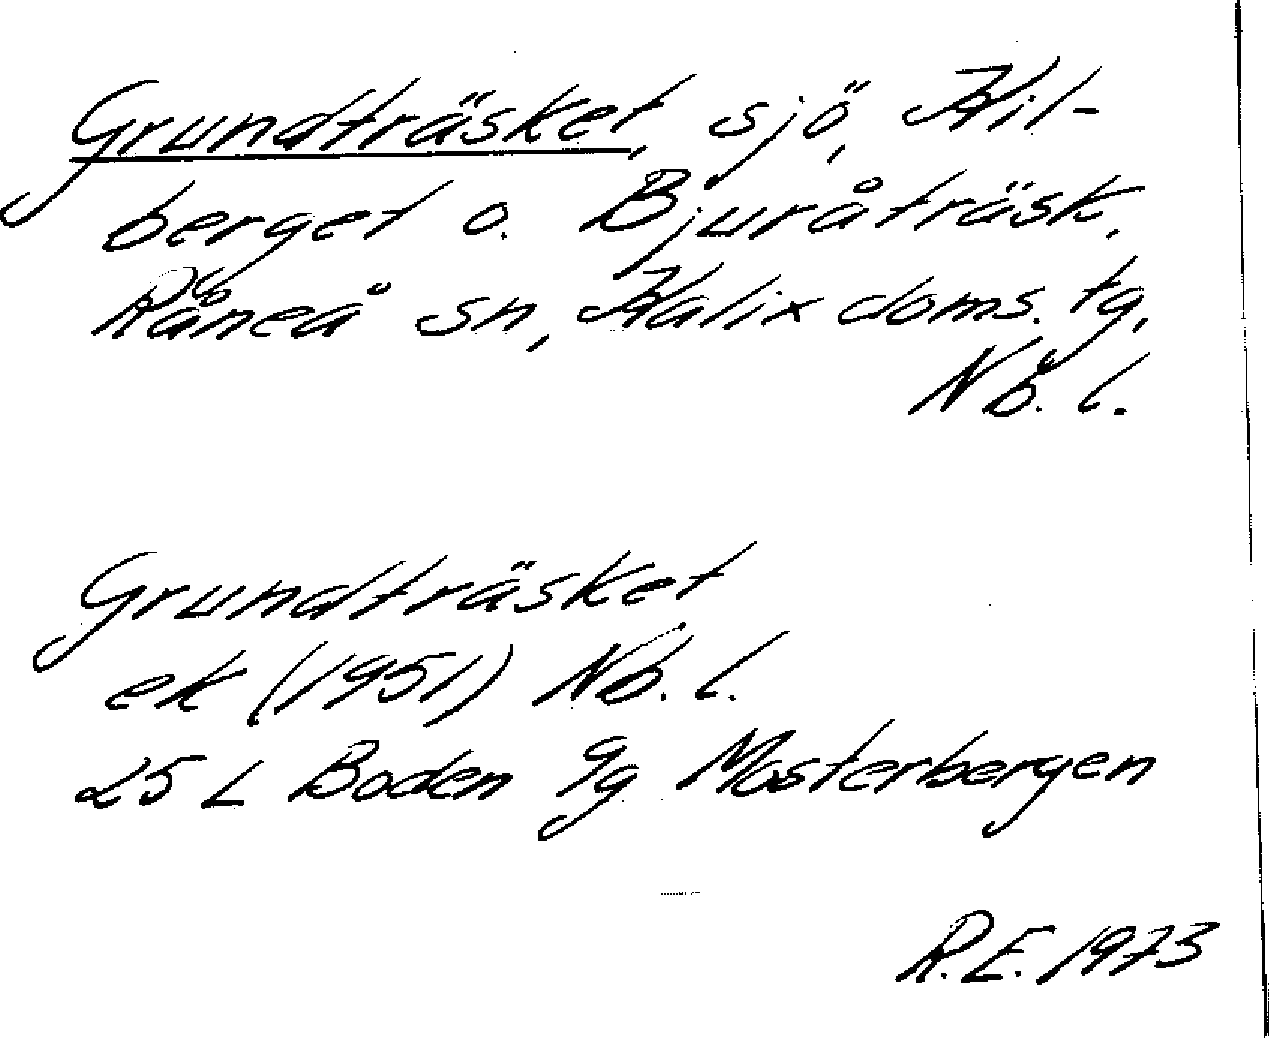 Grundträsket, sjö, Hil-
berget o. Bjuråträsk,
Råneå sn, Kalix doms. tg,
Nb. l.
Grundträsket
ek (1951) Nb. l.
25 L Boden 9g Mosterbergen
R.E. 1973